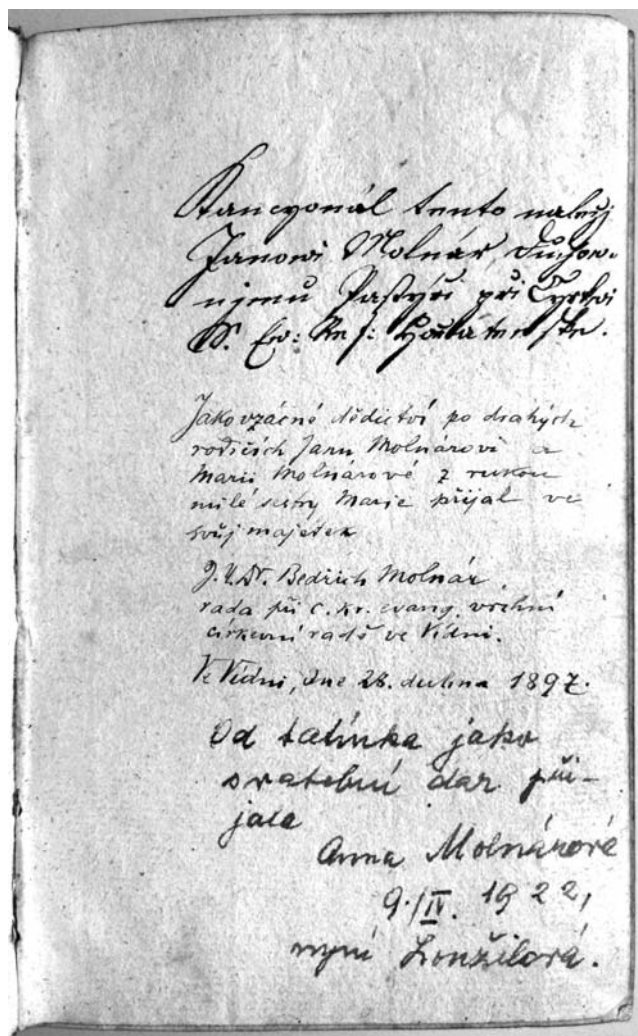 Kancyonál tento naležj
Janowi Molnár Duchow-
njmu Pastýři při Cyrkwi
S. Ew: Ref:
Jako vzácné dědictví po drahých
rodičích Janu Molnárovi a
Marii Molnárové z rukou
milé sestry Marie přijal ve
svůj majetek
J.U.Dr. Bedřich Molnár,
rada při c. kr. evang. vrchní
církevní radě ve Vídni.
Ve Vídni, dne 28. dubna 1897.
Od tatínka jako
svatební dar při-
jala
Anna Molnárová
9./IV. 1922,
nyní Lonžilová.